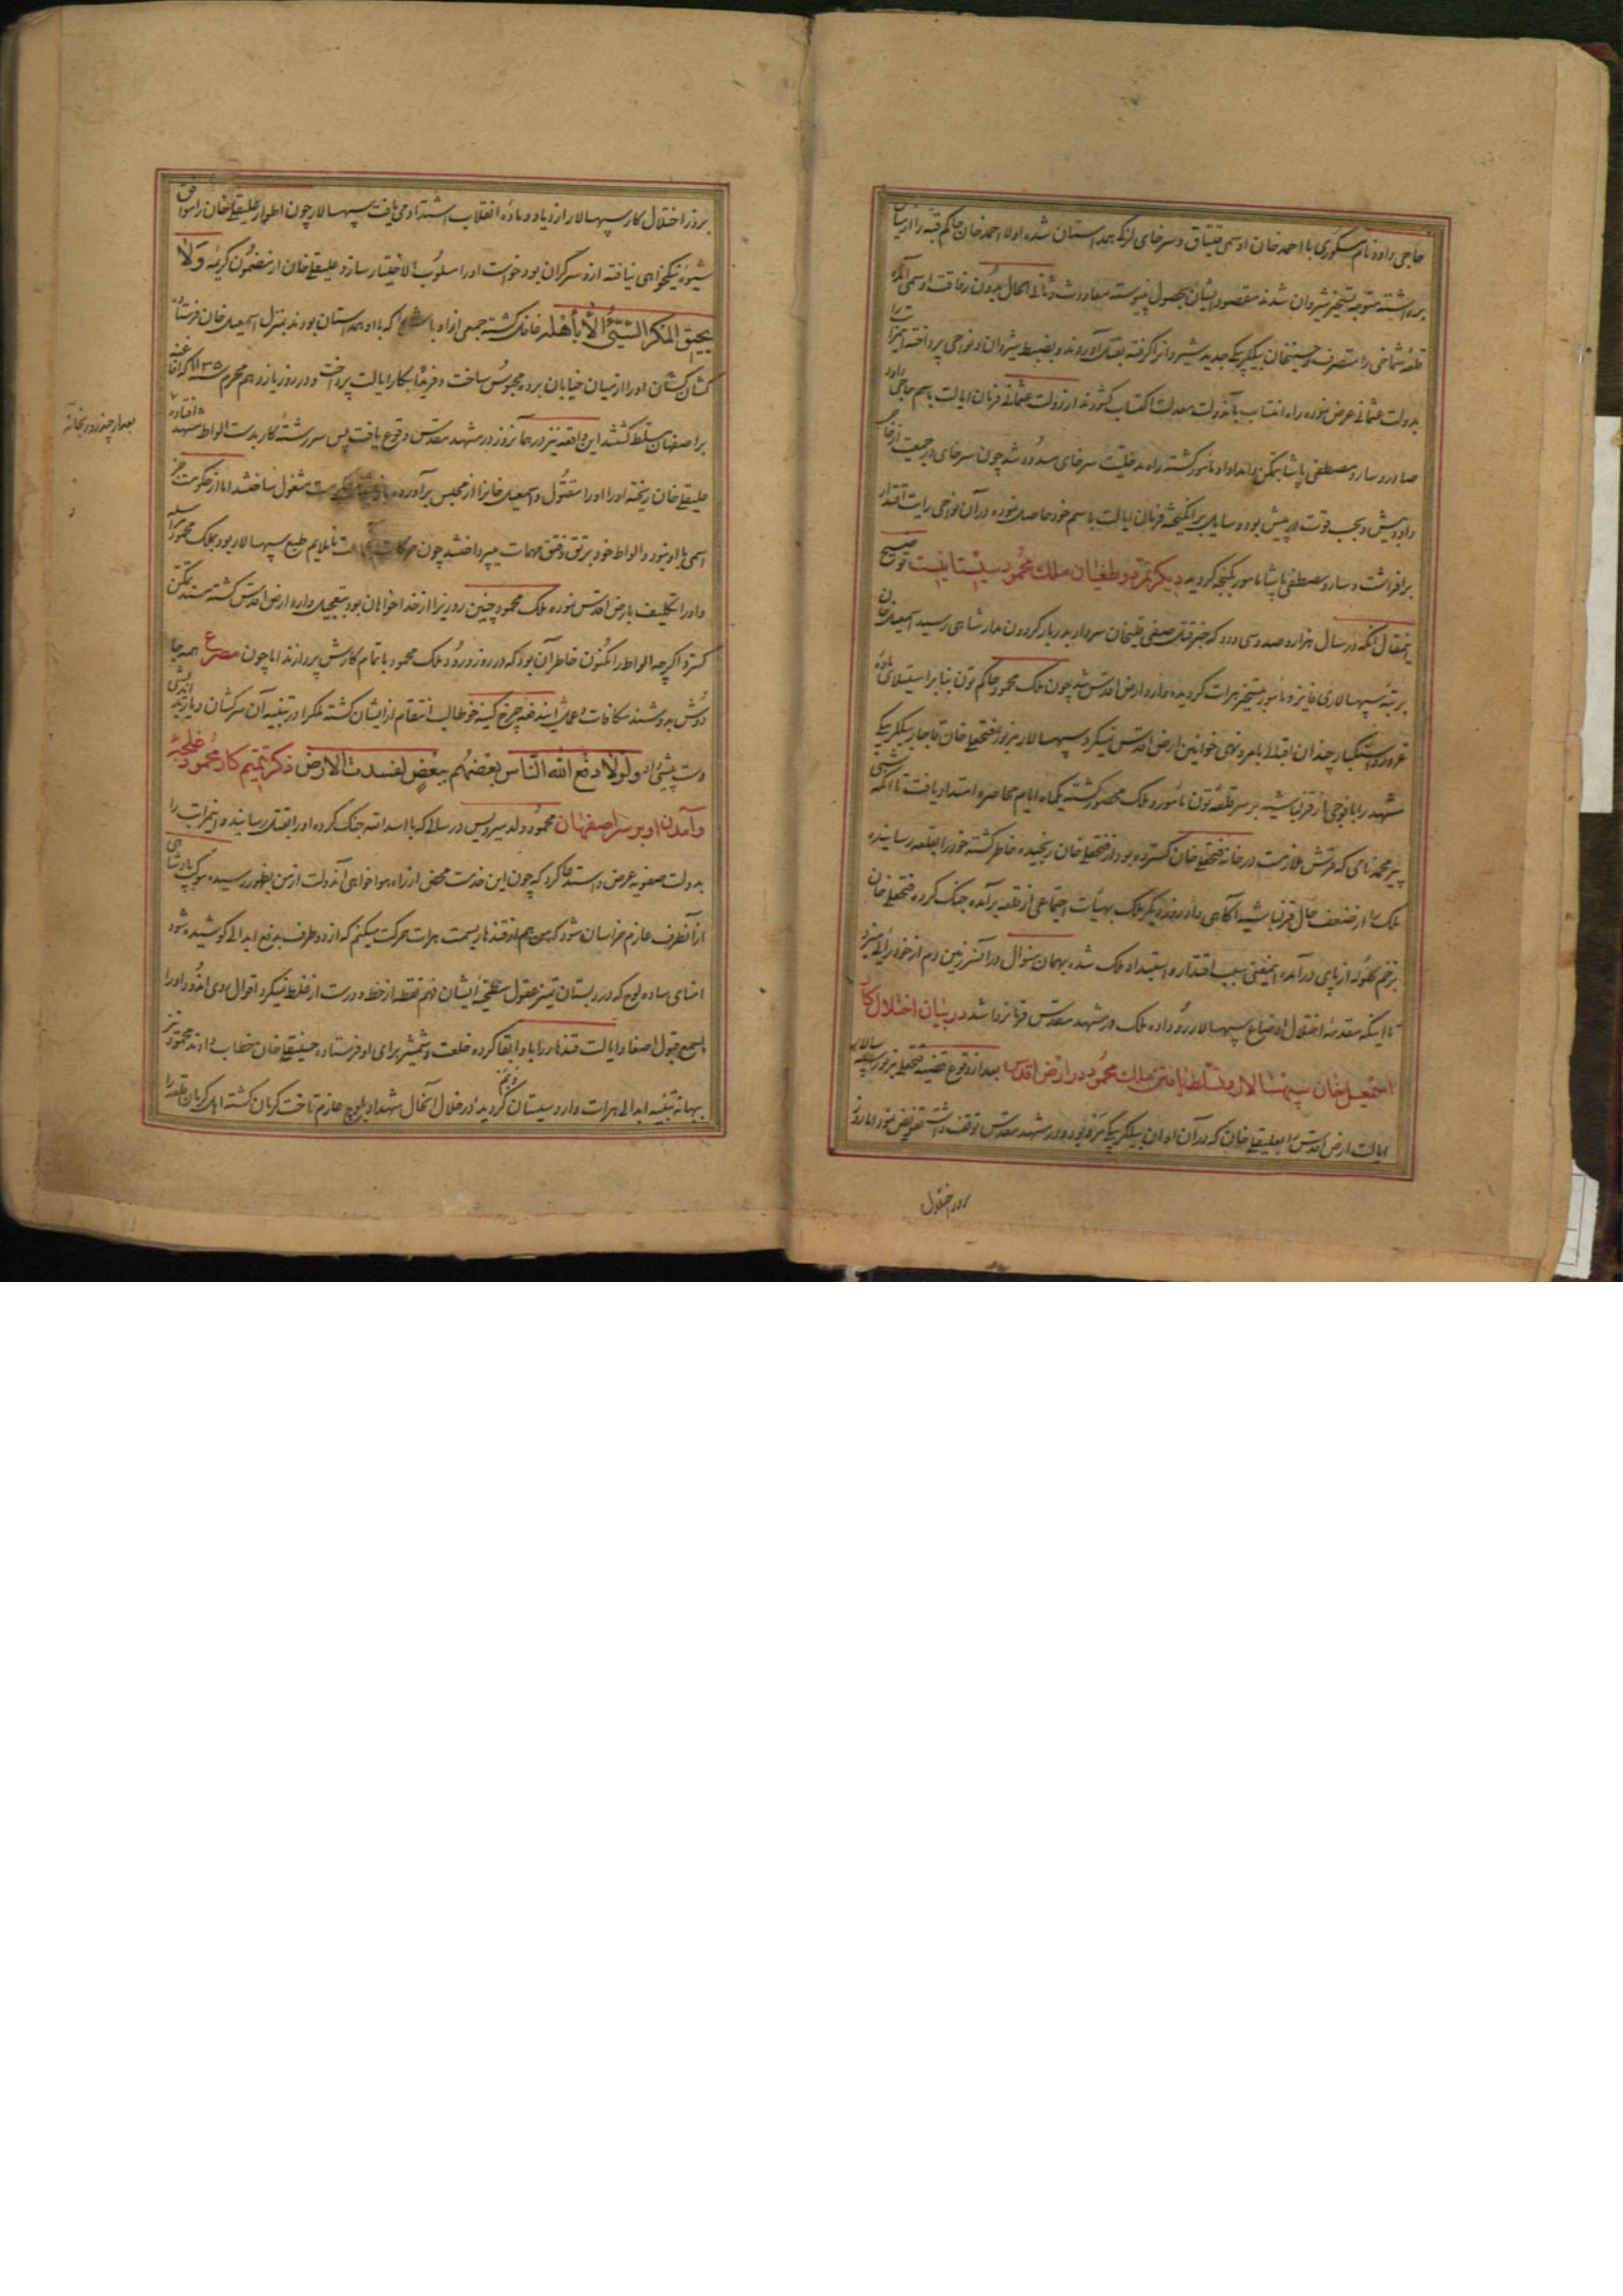 حاجی داود نام مسکوری با احمد خان اوسمی قیتاق و سرخای لزکه همداستان شده اولا احمد خان حاکم قبه را از میان
برداشته متوجه تسخیر شیروان شدند مقصود ایشان بحصول نپیوسته معاودت و ثانی الحال بدون رفاقت اوسمی آمده
قلعه شماخی را متصرف و حسینخان بیکلربیکی جدید شیروانرا گرفته بقتل آوردند و بضبط شیروان و نواحی پرداخته اینمراتب را
بدولت عثمانی عرض نموده راه انتساب بآندولت معدلت اکتساب کشودند از دولت عثمانی فرمان ایالت باسم حاجی داود
صادر و سارو مصطفی پاشا بتمکن و امداد او مامور کشته راه مدخلیت سرخای مسدود شد چون سرخای در جمعیت از حاجی
داود بیش و بحسب قوت در پیش بود وسایل برانکیخته فرمان ایالت باسم خود حاصل نموده در آن نواحی رایت اقتدار
برافراشت و سارو مصطفی پاشا مامور بکنجه کردید دیکر تمرد و طغیان ملک محمود سیستانیست توضیح
اینمقال آنکه در سال هزار و صد و سی و دو که خبر قتل صفی قلیخان سردار بدربار کردون مدار شاهی رسید اسمعیل خان
برتبه سپهسالاری فایز و مامور بتسخیر هرات کردیده وارد ارض اقدس شد چون ملک محمود حاکم تون بنا بر استیلای ماده
غرور و استکبار چندان اقبالی بامر و نهی خوانین ارض اقدس نمیکرد سپهسالار مزبور فتحعلی خان قاجار بیکلربیکی
مشهد را با فوجی از قزلباشیه بر سر قلعه تون مامور و ملک محصور کشته یکماه ایام محاصره امتداد یافت تا آنکه شبی
پیر محمد نامی که فرش ملازمت در خانه فتحعلی خان کسترده بود از فتحعلی خان رنجیده خاطر کشته خود را بقلعه رسانیده
ملک را از ضعف حال قزلباشیه آکاهی داد روز دیکر ملک بهیات اجتماعی از قلعه برآمده جنک کرده فتحعلی خان
بزخم کلوله از پای درآمده اینمعنی سبب اقتدار و استبداد ملک شده بهمان منوال در آنسرزمین دم از خودرائی میزد
تا اینکه مقدمه اختلال اوضاع سپهسالار رو داده ملک در مشهد مقدس فرمانروا شد در بیان اختلال کار
اسمعیل خان سپهسالار و تسلط یافتن ملک محمود در ارض اقدس بعد از وقوع قضیه فتحعلی مزبور سپهسالار
ایالت ارض اقدس را بعلیقلی خان که در آن اوان بیکلربیکی مرو بود و در مشهد مقدس توقف داشت تفویض نمود اما روز
بروز اختلال
بروز اختلال کار سپهسالار ازدیاد و ماده انقلاب اشتداد می یافت سپهسالار چون اطوار علیقلی خان را موافق
شیوه نیکخواهی نیافته ازو سرکران بود خواست او را مسلوب الاختیار سازد علیقلی خان از مضمون کریمه وَلا
یحیق المکر السیّئ الّا بأهله غافل کشته جمعی از اوباش را که با او همداستان بودند بمنزل اسمعیل خان فرستاده
کشان کشان او را از میان خیابان برده محبوس ساخت و فریدا بکار ایالت پرداخت و در روز یازدهم محرم سنه ۱۱۳۵ که افاغنه
بر اصفهان مسلط کشتند این واقعه نیز در همانروز در مشهد مقدس وقوع یافت پس سررشته کار بدست الواط مشهد افتاده
بعد از چند روز بخانه
علیقلی خان ریخته او را مقتول و اسمعیل خانرا از محبس برآورده باز بشغل حکومت مشغول ساختند اما از حکومت جز
اسمی با او نبود و الواط خود برتق و فتق مهمات میپرداختند چون حرکات ناملایم طبع سپهسالار بود بملک محمود مراسله
و او را تکلیف بارض اقدس نموده ملک محمود چنین روزیرا از خدا خواهان بود بتعجیل وارد ارض اقدس کشته مسند تمکن
کسترد اکرچه الواط را مکنون خاطر آن بود که در روز ورود ملک محمود باتمام کارش پردازند اما چون مصرع همه جا
دوش بدوشند مکافات و عمل ایندفعه چرخ کینه خو طالب انتقام از ایشان کشته ملکرا در تنبیه آن سرکشان و یارند اندیش
دست پیشی داد ولولا دفع الله الناس بعضهم ببعض لفسدت الارض ذکر تتمیم کار محمود غلجه
و آمدن او بر سر اصفهان محمود ولد میرویس در سالی که با اسد الله جنک کرده او را بقتل رسانیده اینمراتب را
بدولت صفویه عرض و استدعا کرد که چون این خدمت محض از راه هواخواهی آندولت از من بظهور رسیده موکب پادشاهی
از آنطرف عازم خراسان شود که من هم از قندهار بسمت هرات حرکت میکنم که از دو طرف بدفع ابدالی کوشیده شود
امنای ساده لوح که در دبستان تمیز عقول سطحیه ایشان فهم نقطه از خط و درست از غلط نمیکرد اقوال دروغ اندود او را
بسمع قبول اصغا و ایالت قندهار را باو ابقا کرده خلعت و شمشیر برای او فرستاده حسینقلی خان خطاب دادند محمود نیز
ببهانه تنبیه ابدالی هرات وارد سیستان کردید در خلال آنحال شهداد بلوچ عازم تاخت کرمان کشته اهل کرمان قلعه را